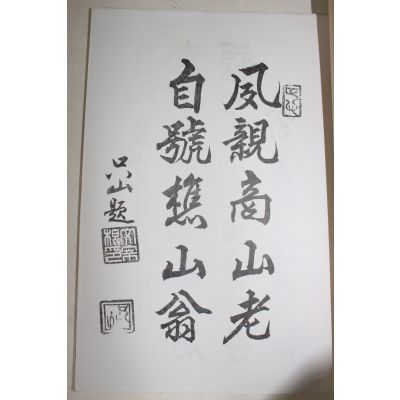 夙親商山老
自號樵山翁
只山題